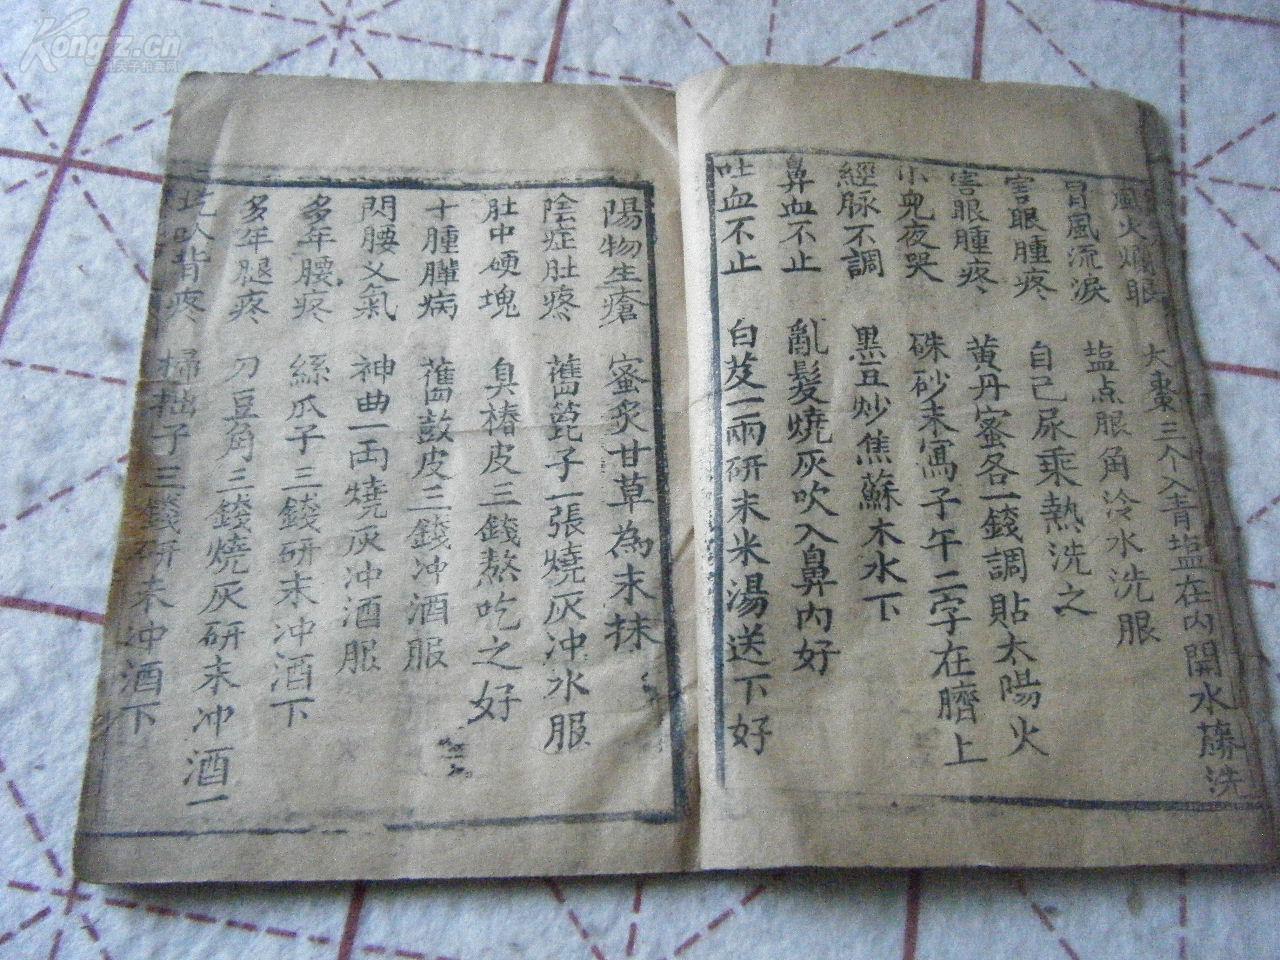 風火爛眼 大棗三个入青塩在內開水蘸洗
冒風流淚 塩点眼角冷水洗眼
害眼腫疼 自己尿乘熱洗之
害眼腫疼 黃丹蜜各一錢調貼太陽火
小兒夜哭 硃砂末寫子午二字在臍上
經脉不調 黑豆炒焦蘇木水下
鼻血不止 亂髮燒灰吹入鼻內好
吐血不止 白芨一兩研末米湯送下好
陽物生瘡 蜜炙甘草為末抹
陰症肚疼 舊篦子一張燒灰冲水服
肚中硬塊 臭椿皮三錢熬吃之好
十腫臌病 舊鼓皮三錢冲酒服
閃腰义氣 神曲一两燒灰冲酒服
多年腰疼 絲瓜子三錢研末冲酒下
多年腿疼 刀豆角三錢燒灰研末冲酒一
背疼 子三錢研末冲酒下
Kongfz.cn